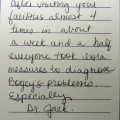 After visiting your
facilities almost 4
times in about
a week and a half
everyone took extra
measures to diagnose
Bogey's problems
Especially
Dr. Jack.